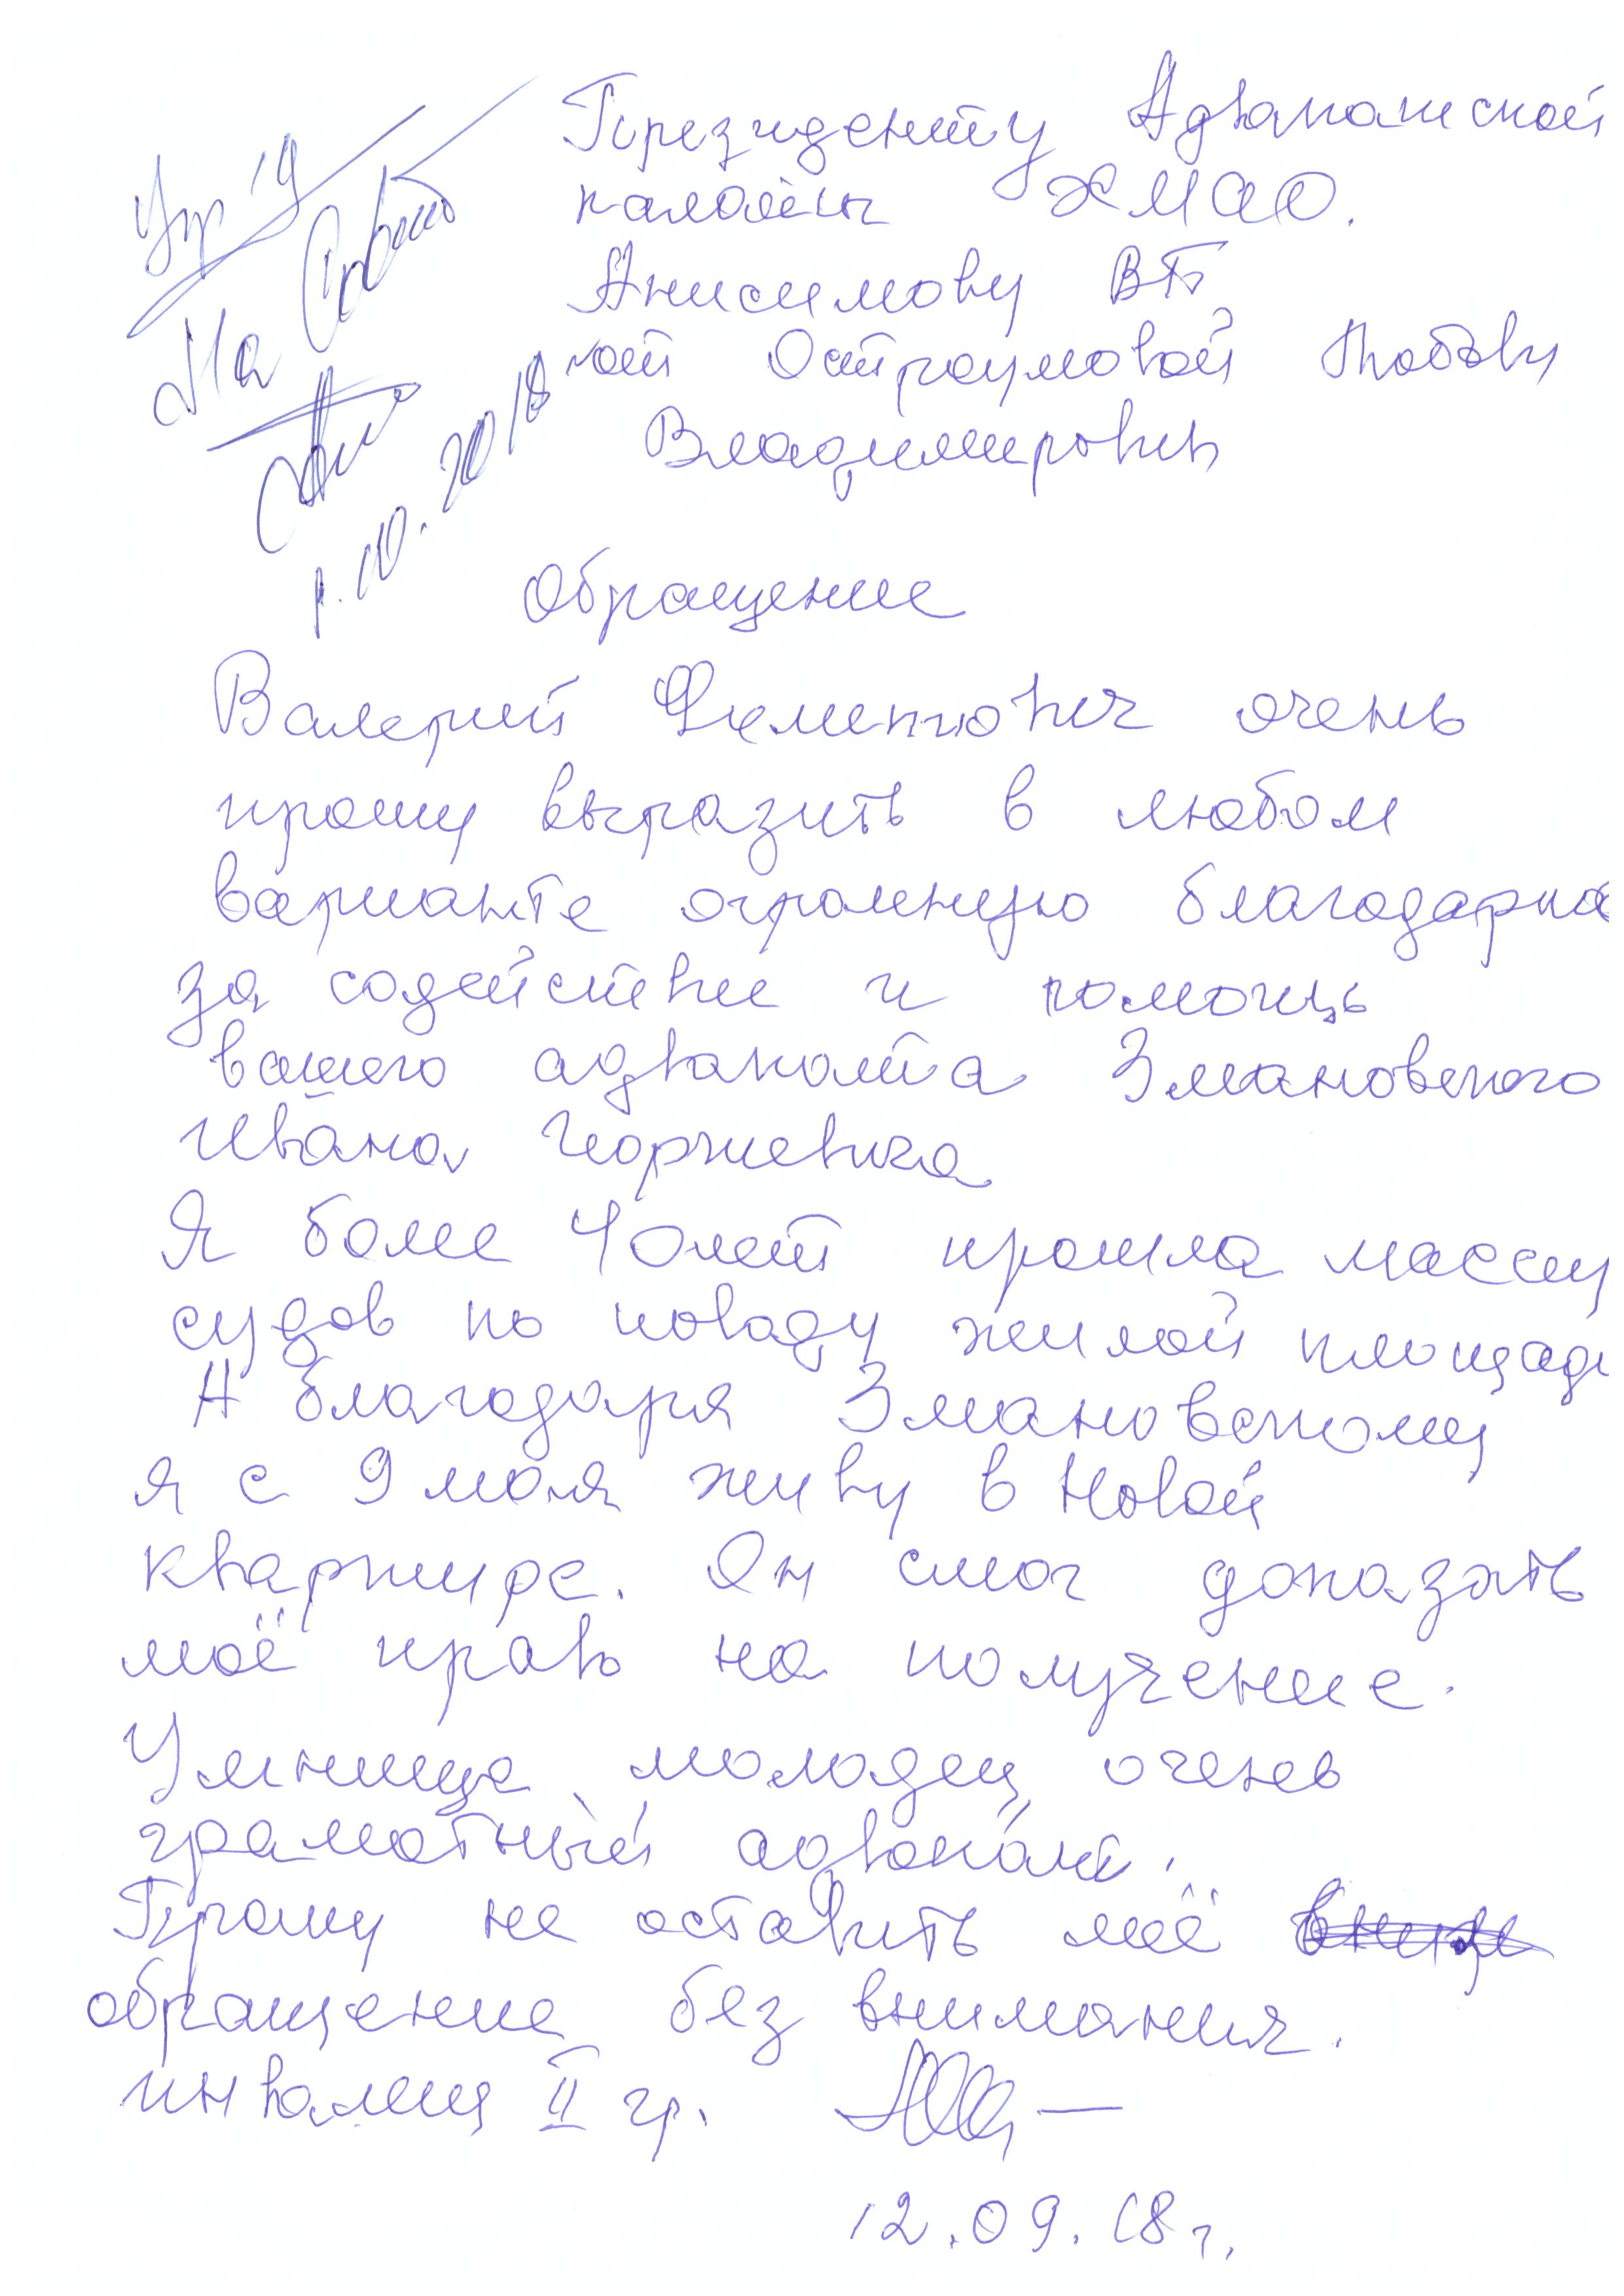 Президенту Адвокатской
палаты ХМАО.
Анисимову ВФ
от Остроумовой Любовь
Владимировны
На Совет
1.10.2018
Обращение
Валерий Филиппович очень
прошу выразить в любом
варианте огромную благодарнос
за содействие и помощь
вашего адвоката Змановского
Ивана Георгиевича
Я более 40 лет прошла массу
судов по поводу жилой площади
А благодаря Змановскому
я с 9 мая живу в новой
квартире. Он смог доказать
моё право на получение.
Умница молодец очень
грамотный адвокат.
Прошу не оставить моё
обращение без внимания.
инвалид II гр.
12.09.18 г.